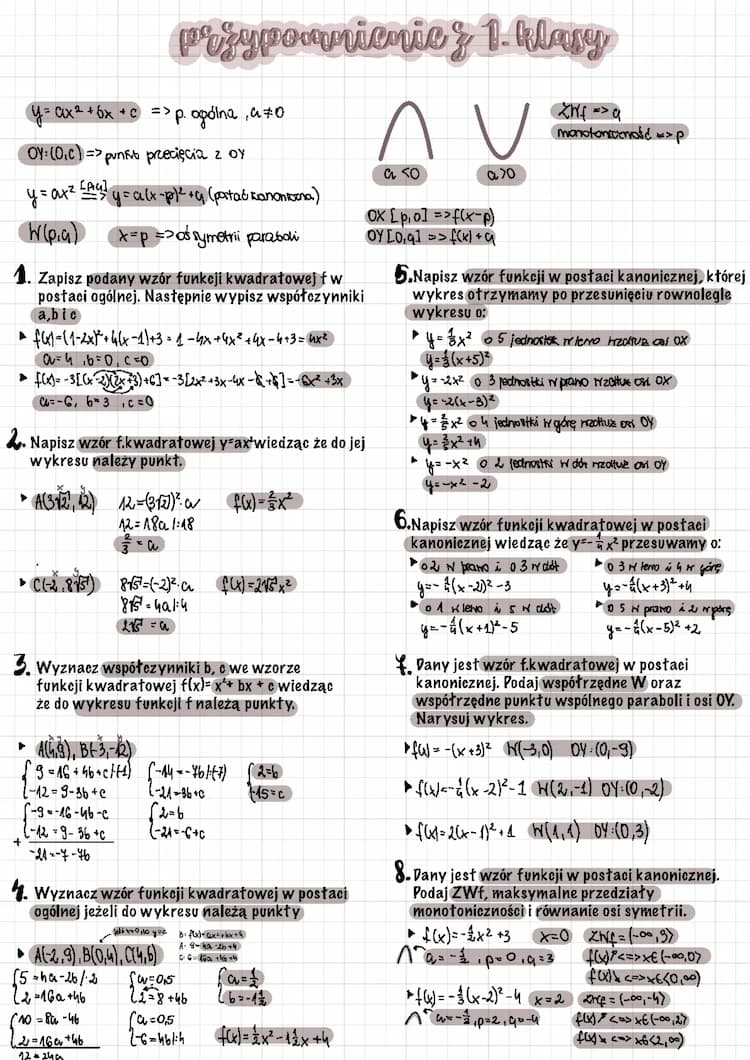 przypomnienie z 1. klasy
y = ax² + bx + c => p. ogólna, a≠0
OY: (0,c) => punkt przecięcia z OY
y = ax² [p,q] => y = a(x-p)² + q (postać kanoniczna)
W(p,q) x=p => oś symetrii paraboli
a<0 a>0
ZWf => q
monotoniczność => p
OX [p,0] => f(x-p)
OY [0,q] => f(x)+q
1. Zapisz podany wzór funkcji kwadratowej f w
postaci ogólnej. Następnie wypisz współczynniki
a,b i c
f(x)=(1-2x)²+4(x-1)+3 = 1-4x+4x²+4x-4+3= 4x²
a=4, b=0, c=0
f(x)=-3[(x-2)(2x+3)+6]=-3[2x²+3x-4x-6+6]=-6x²+3x
a=-6, b=3, c=0
2. Napisz wzór f.kwadratowej y=ax² wiedząc że do jej
wykresu należy punkt.
A(3√2, 12) 12=(3√2)²·a f(x)=2/3x²
12=18a |:18
2/3 = a
C(-2, 8√5) 8√5=(-2)²·a f(x)=2√5x²
8√5=4a|:4
2√5 = a
3. Wyznacz współczynniki b, c we wzorze
funkcji kwadratowej f(x)= x²+ bx + c wiedząc
że do wykresu funkcji f należą punkty.
A(4,9), B(-3,-12)
9=16+4b+c/·(-1) -14=-7b/:(-7) 2=b
-12=9-3b+c -21=-3b+c -15=c
-9=-16-4b-c 2=b
-12=9-3b+c -21=-6+c
+
-21=-7-7b
4. Wyznacz wzór funkcji kwadratowej w postaci
ogólnej jeżeli do wykresu należą punkty
B: f(x)=ax²+bx+4
A: 9=4a-2b+4
C: 6=16a+4b+4
A(-2,9), B(0,4), C(4,6)
5=4a-2b/·2 a=0,5 a=1/2
2=16a+4b 2=8+4b b=-1 1/2
10=8a-4b a=0,5
2=16a+4b -6=4b|:4 f(x)=1/2x²-1 1/2x+4
12=24a
5. Napisz wzór funkcji w postaci kanonicznej, której
wykres otrzymamy po przesunięciu rownolegle
wykresu o:
y=1/3x² o 5 jednostek w lewo wzdłuż osi OX
y=1/3(x+5)²
y=-2x² o 3 jednostki w prawo wzdłuż osi OX
y=-2(x-3)²
y=2/5x² o 4 jednostki w górę wzdłuż osi OY
y=2/5x²+4
y=-x² o 2 jednostki w dół wzdłuż osi OY
y=-x²-2
6. Napisz wzór funkcji kwadratowej w postaci
kanonicznej wiedząc że y=-1/4x² przesuwamy o:
o 2 w prawo i o 3 w dół o 3 w lewo i 4 w górę
y=-1/4(x-2)²-3 y=-1/4(x+3)²+4
o 1 w lewo i 5 w dół o 5 w prawo i 2 w górę
y=-1/4(x+1)²-5 y=-1/4(x-5)²+2
7. Dany jest wzór f.kwadratowej w postaci
kanonicznej. Podaj współrzędne W oraz
współrzędne punktu wspólnego paraboli i osi OY.
Narysuj wykres.
f(x)=-(x+3)² W(-3,0) OY:(0,-9)
f(x)=-1/4(x-2)²-1 W(2,-1) OY:(0,-2)
f(x)=2(x-1)²+1 W(1,1) OY:(0,3)
8. Dany jest wzór funkcji w postaci kanonicznej.
Podaj ZWf, maksymalne przedziały
monotoniczności i równanie osi symetrii.
f(x)=-1/2x²+3 x=0 ZWf=(-∞,3⟩
a=-1/2, p=0, q=3 f(x)↗<=>x∈(-∞,0⟩
f(x)↘<=>x∈⟨0,∞)
f(x)=-1/3(x-2)²-4 x=2 ZWf=(-∞,-4⟩
a=-1/3, p=2, q=-4 f(x)↗<=>x∈(-∞,2⟩
f(x)↘<=>x∈⟨2,∞)